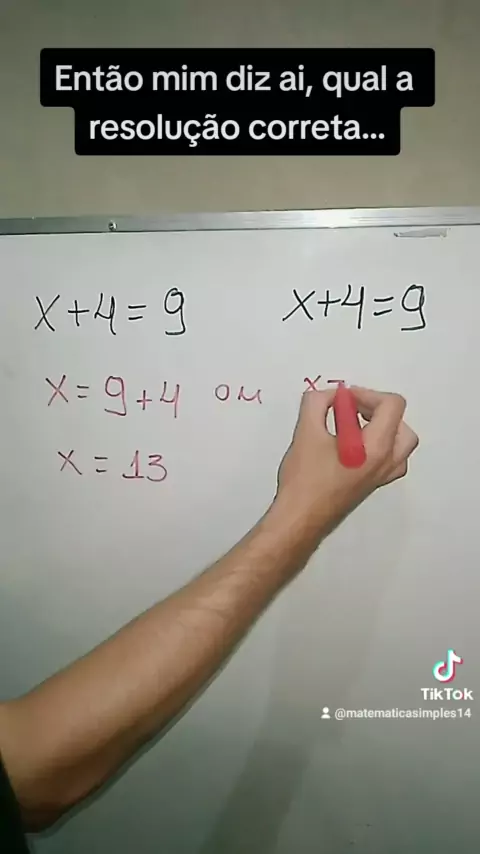 Então mim diz ai, qual a
resolução correta...
x+4=9
x+4=9
x=9+4 ou x=
x=13
TikTok
@matematicasimples14